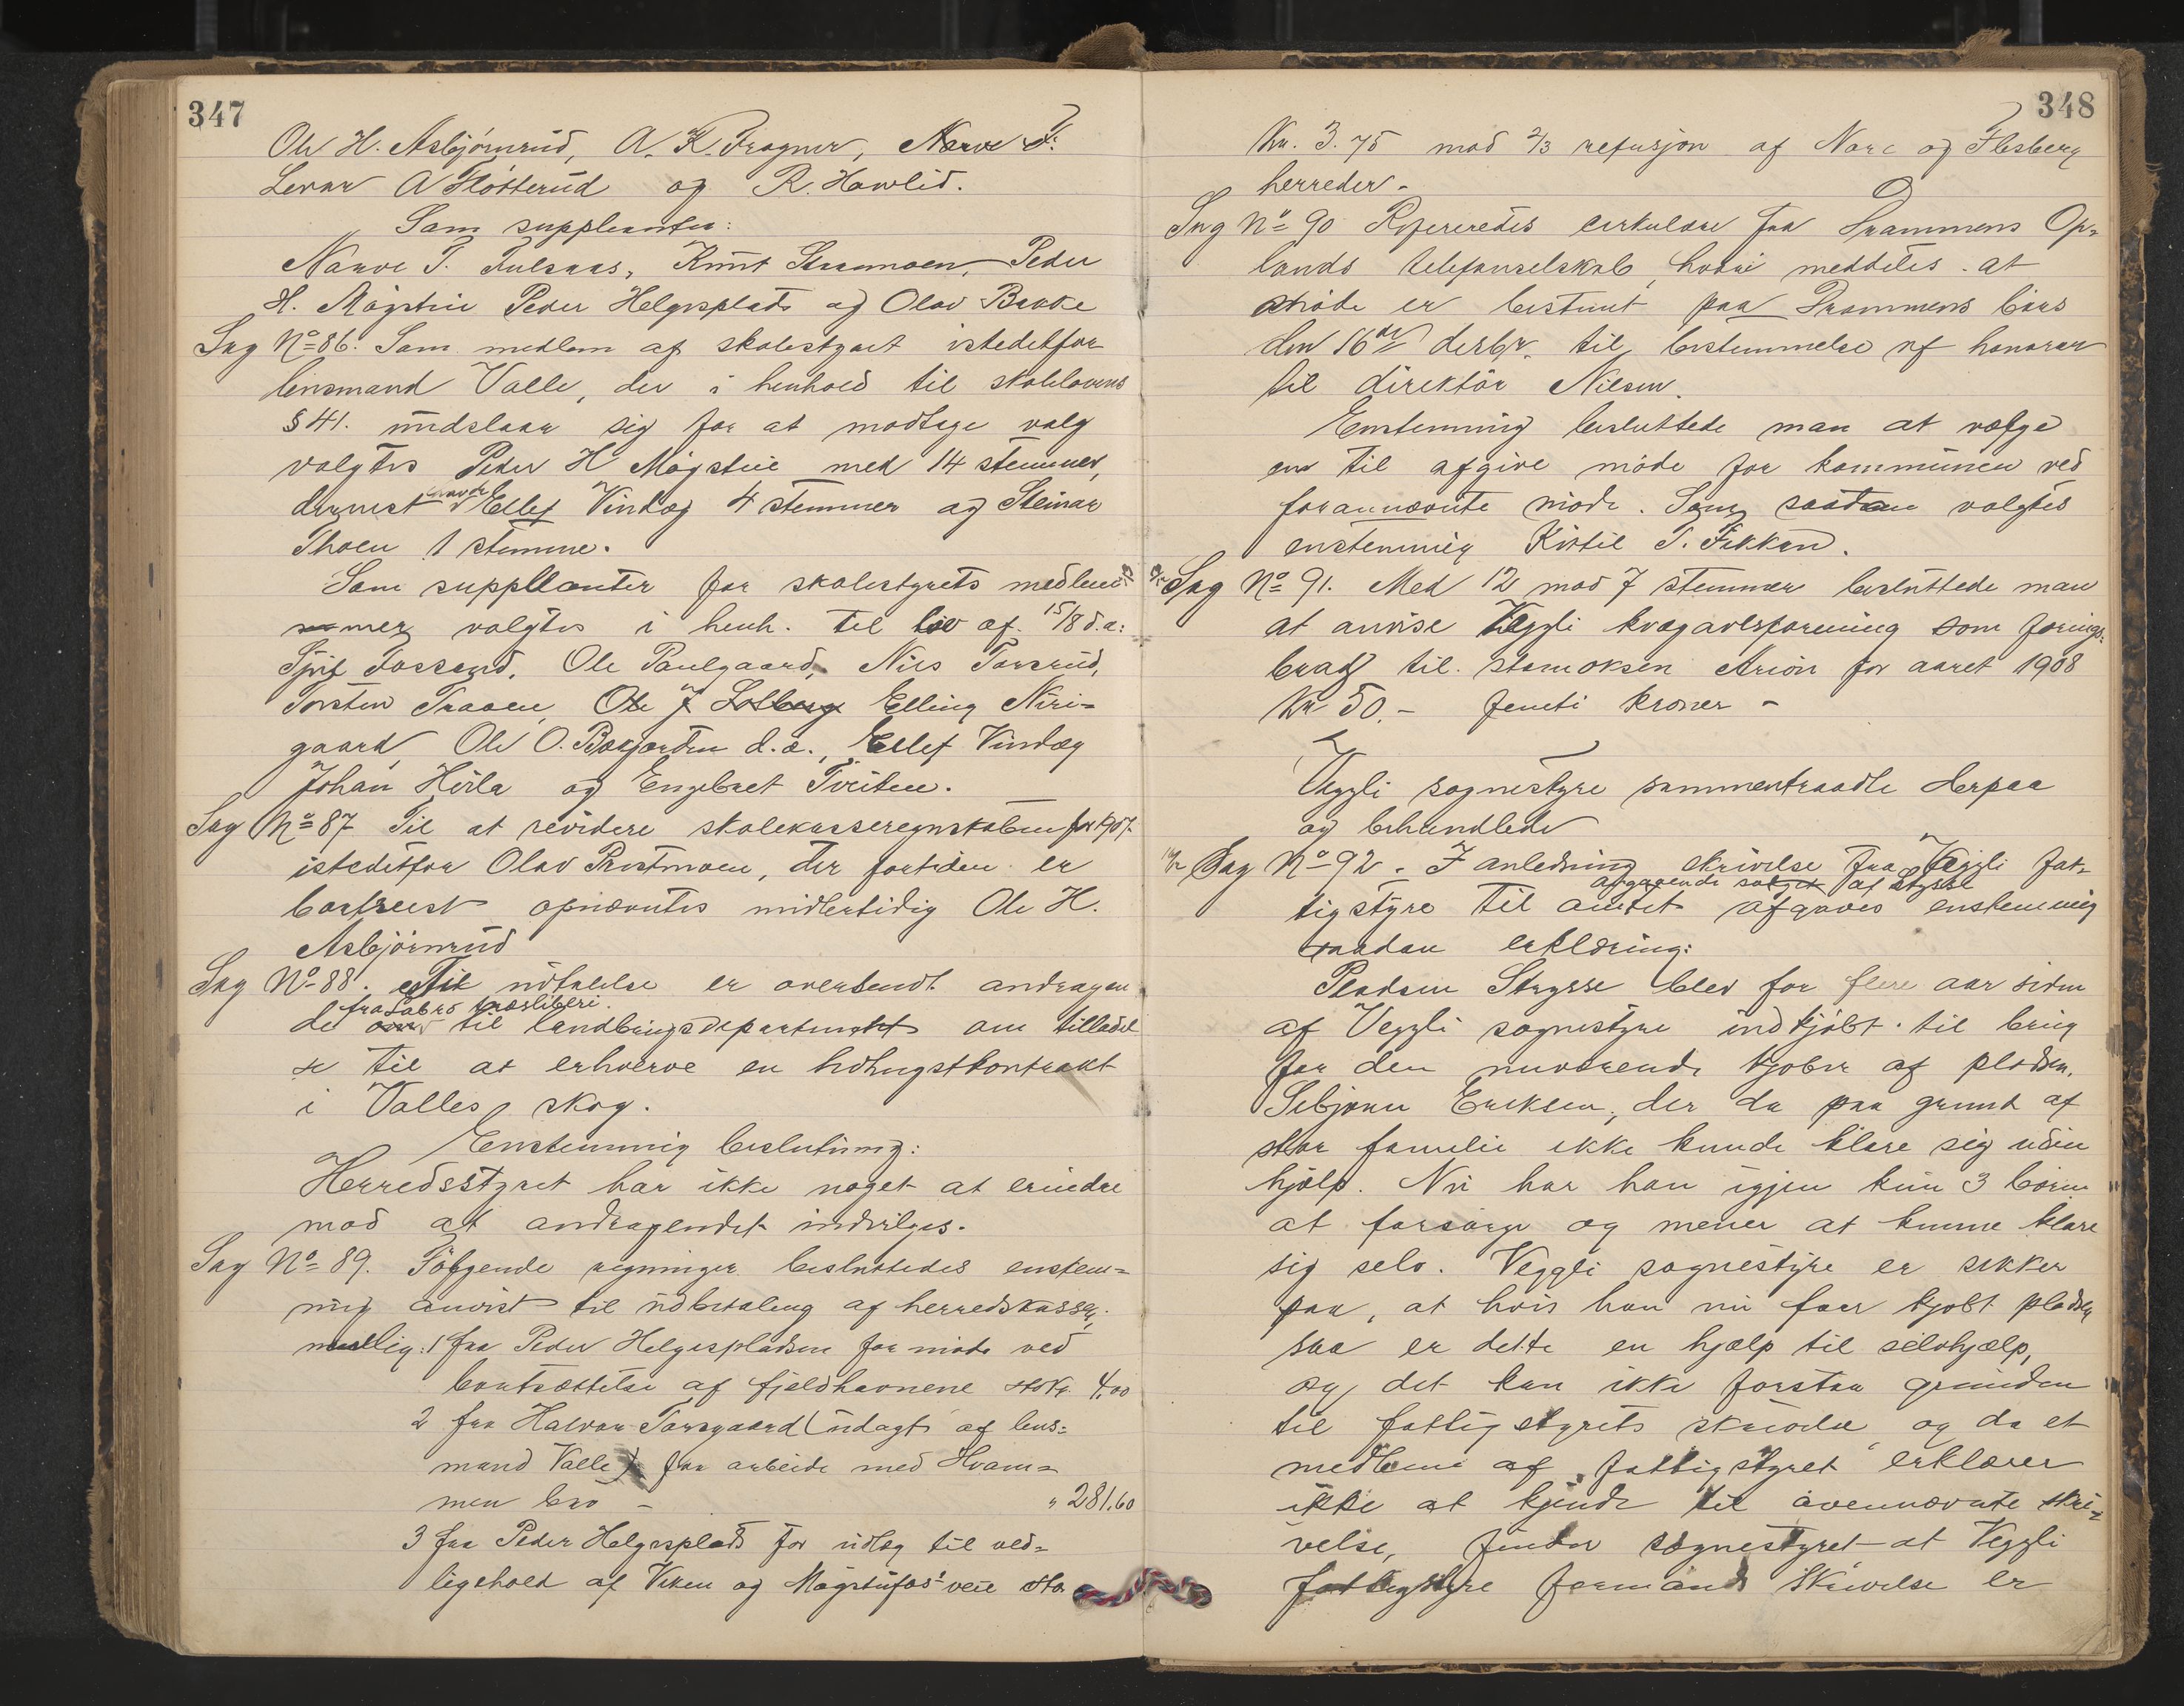 347
Ole H. Asbjörnrud, A. K. Fragner, Narve T.
Levar A Flötterud og R. Hawlid.
Som suppleanter:
Narve T. Fulsaas, Knut Straumoen, Peder
H. Mögstue Peder Helgesplads og Olav Bakke
Sag No 86. Som medlem af skolestyret istedetfor
lensmand Valle, der i henhold til skolelovens
§ 41. undslaar sig for at modtage valg
valgtes Peder H Mögstue med 14 stemmer,
dernæst havde Ellef Vindeg 4 stemmer og Steinar
Thoen 1 stemme.
Som suppleanter for skolestyrets medlem-
mer valgtes i henh. til lov af 15/8 d.a:
Fossend, Ole Paulgaard, Nils Torsrud,
Torsten Traaen, Ole J Elling Niri-
gaard, Ole O. Bakjorden d.æ., Ellef Vindeg
Johan Hvila og Engebret Tveiten.
Sag No 87 Til at revidere skolekasseregnskabene for 1907.
istedetfor Olav Prestmoen, der fortiden er
bortreist opnævntes midlertidig Ole H.
Asbjörnrud
Sag No 88. Til udtalelse er oversendt andragen
de fra Labro træsliberi til landbrugsdepartementet om tilladel
se til at erhverve en hedhugstkontrakt
i Valles skog.
Enstemmig beslutning:
Herredsstyret har ikke noget at erindre
mod at andragendet indvilges.
Sag No 89. Fölgende regninger besluttedes enstem-
mig anvist til udbetaling af herredskassen,
nemlig: 1 fra Peder Helgespladsen for möde ved
bortsættelse af fjeldhavnene stor Kr. 4.00
2 fra Halvor Torsgaard (udlagt af lens-
mand Valle) for arbeide med Hvam-
men bro - " 281.60
3 fra Peder Helgesplads for udlæg til ved-
ligehold af Viken og Mögstufos' veie stor
348
Kr. 3.75 mod 2/3 refusjon af Nore og Flesberg
herreder.
Sag No 90 Refereredes cirkulære fra Drammens Op-
lands telefonselskab, hvori meddeles at
möde er bestemt paa Drammens börs
den 16de desbr. til bestemmelse af honorar
til direktör Nilsen.
Enstemmig besluttede man at vælge
en til afgive möde for kommunen ved
forannævnte möde. Som saadan valgtes
enstemmig Kittil T. Fekken.
Sag No 91. Med 12 mod 7 stemmer besluttede man
at anvise Veggli kvægavlsforening som forings-
bidrag til stamoksen Arion for aaret 1908
Kr 50.- femti kroner -
Veggli sognestyre sammentraadte derpaa
og behandlede
Sag No 92. I anledning skrivelse fra Veggli fat-
tigstyre til amtet angaaende salget af Strysse afgaves enstemmig
saadan erklæring:
Pladsen Strysse blev for flere aar siden
af Veggli sognestyre indkjöbt til brug
for den nuværende kjöber af pladsen.
Sebjörn Eriksen, der da paa grund af
stor familie ikke kunde klare sig uden
hjölp. Nu har han igjen kun 3 börn
at forsörge og mener at kunne klare
sig selv. Veggli sognestyre er sikker
paa, at hvis han nu faar kjöbt pladsen
saa er dette en hjælp til selvhjælp,
og det kan ikke forstaa grunden
til fattigstyrets skrivelse og da et
medlem af fattigstyret erklærer
ikke at kjende til ovennævnte skri-
velse, finder sognestyret at Veggli
fattigstyre formands skrivelse er